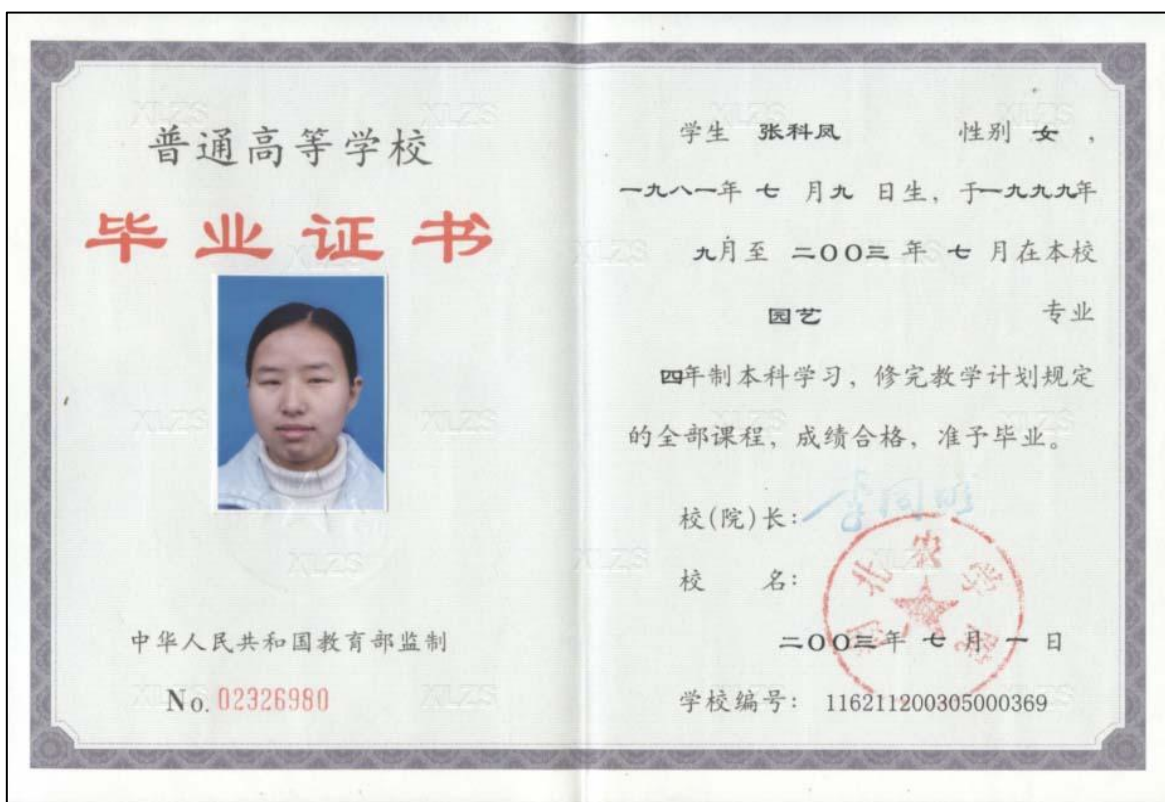 普通高等学校
毕业证书
中华人民共和国教育部监制
No. 02326980
学生 张科凤 性别 女，
一九八一年 七 月九 日生，于一九九九年
九月至 二OO三 年 七 月在本校
园艺 专业
四年制本科学习，修完教学计划规定
的全部课程，成绩合格，准予毕业。
校(院)长：
校 名：
北农学院
二OO三年 七 月 一 日
学校编号： 116211200305000369
XLZS